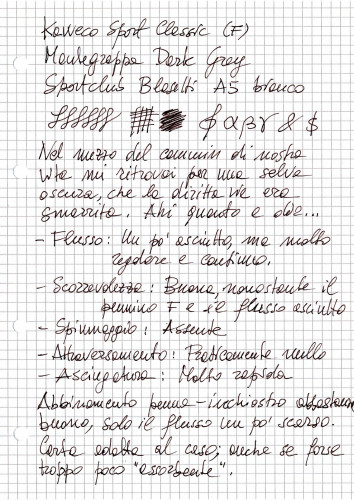 Kaweco Sport Classic (F)
Montegrappa Dark Gray
Sportclub Blasetti A5 bianco
α β γ & $
Nel mezzo del cammin di nostra
vita mi ritrovai per una selva
oscura, che la diritta via era
smarrita. Ahi quanto a dir...
- Flusso: Un po' asciutto, ma molto
regolare e continuo.
- Scorrevolezza: Buona, nonostante il
pennino F e il flusso asciutto
- Spiumaggio: Assente
- Attraversamento: Praticamente nullo
- Asciugatura: Molto rapida
Abbinamento penna-inchiostro abbastanza
buono, solo il flusso un po' scarso.
Carta adatta al caso, anche se forse
troppo poco "assorbente".